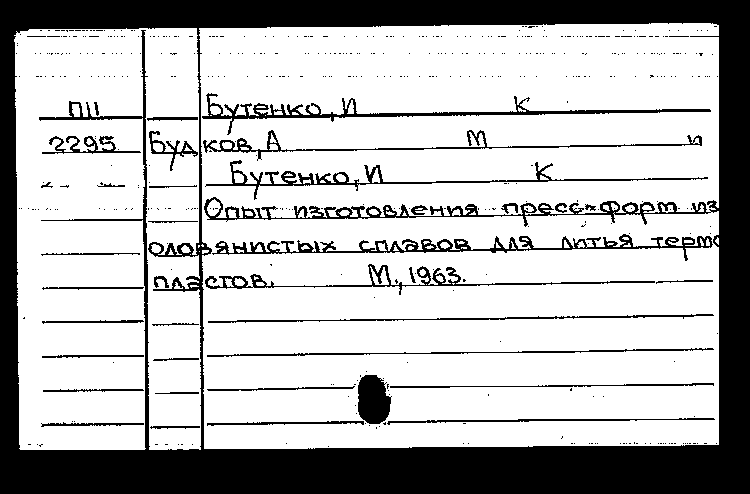 П11 Бутенко, И К
2295 Будков, А М и
Бутенко, И К
Опыт изготовления пресс-форм из
оловянистых сплавов для литья термо
пластов. М., 1963.